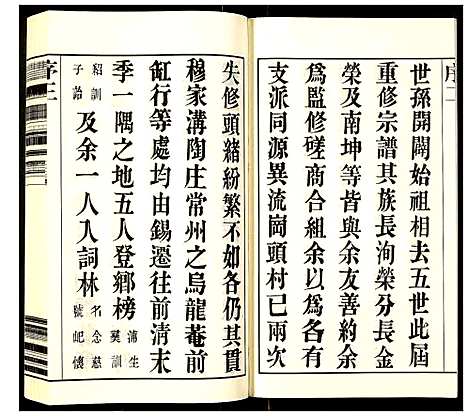 序二
世孫開闢始祖相去五世此屆
重修宗譜其族長洵榮分長金
榮及南坤等皆與余友善約余
為監修磋商合組余以為其與
支派同源異流崗頭村已兩次
失修頭緒紛繁不如各仍其貫
穆家溝陶庄常州之烏龍菴前
缸行等處均由錫遷往前清末
季一隅之地五人登鄉榜 蒲生 奠訓
紹訓 子詒 及余一人入詞林 名念慈 號屺懷
序三